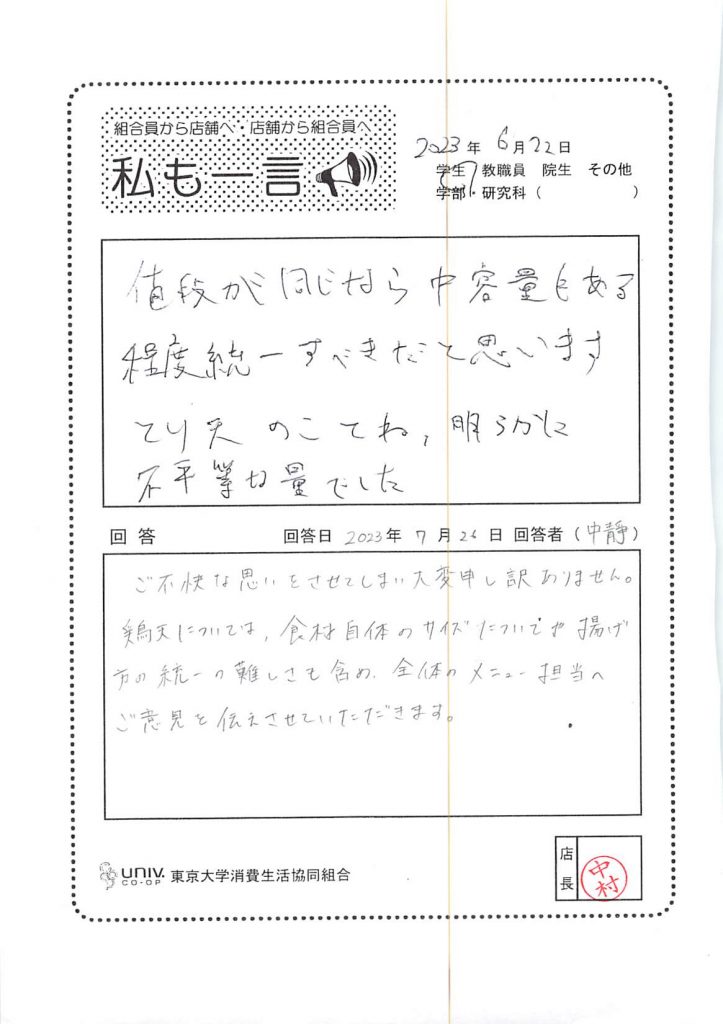 組合員から店舗へ・店舗から組合員へ
私も一言
2023年 6月22日
学生 教職員 院生 その他
学部・研究科( )
値段が同じなら中容量もある
程度統一すべきだと思います
とり天のことね,明らかに
不平等な量でした
回答 回答日 2023年 7月26日 回答者(中靜)
ご不快な思いをさせてしまい大変申し訳ありません。
鶏天については、食材自体のサイズについてや揚げ
方の統一の難しさも含め、全体のメニュー担当へ
ご意見を伝えさせていただきます。
UNIV. CO-OP 東京大学消費生活協同組合
店長
中村